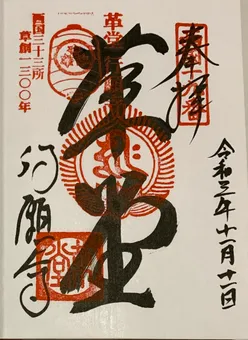 奉拝
令和三年十一月十一日
革堂
行願寺
西国三十三所
草創一三〇〇年